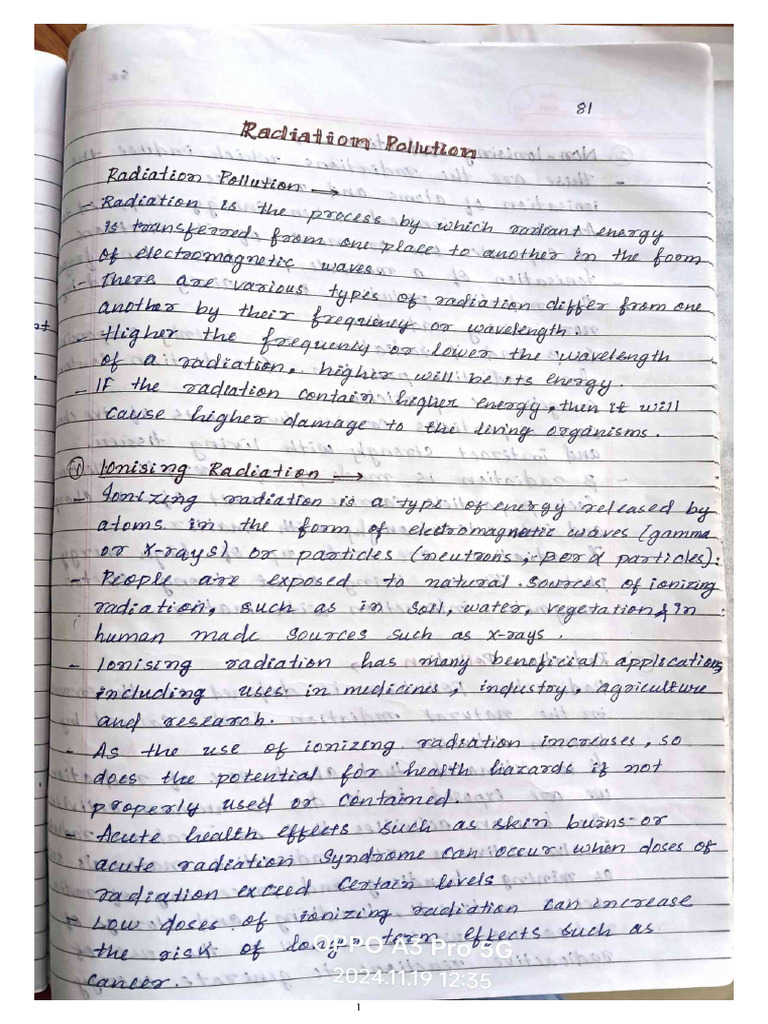 81
Radiation Pollution
Radiation Pollution →
- Radiation is the process by which radiant energy
is transferred from one place to another in the form
of electromagnetic waves
- There are various types of radiation differ from one
another by their frequency or wavelength.
- Higher the frequency or lower the wavelength
of a radiation, higher will be its energy.
- If the radiation contain higher energy, then it will
cause higher damage to the living organisms.
① Ionising Radiation →
- Ionizing radiation is a type of energy released by
atoms in the form of electromagnetic waves (gamma
or X-rays) or particles (neutrons, β or α particles).
- People are exposed to natural sources of ionizing
radiation, such as in soil, water, vegetation & in
human made sources such as x-rays.
- Ionising radiation has many beneficial applications,
including uses in medicines, industry, agriculture
and research.
- As the use of ionizing radiation increases, so
does the potential for health hazards if not
properly used or contained.
- Acute health effects such as skin burns or
acute radiation syndrome can occur when doses of
radiation exceed certain levels
- Low doses of ionizing radiation can increase
the risk of long term effects such as
cancer.
OPPO A3 Pro 5G
2024.11.19 12:35
1